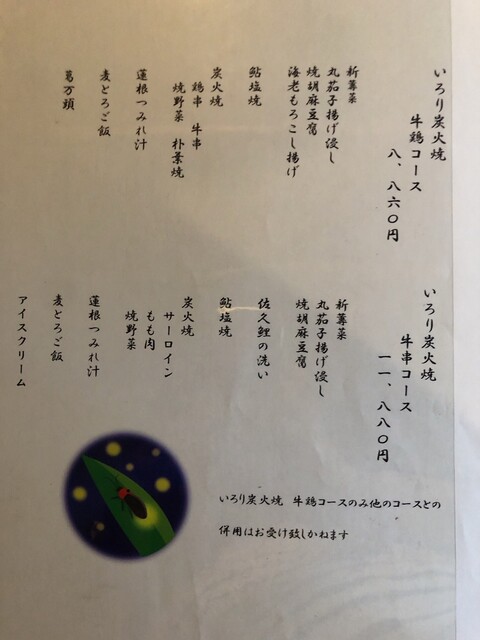 いろり炭火焼
牛鶏コース
八、八六〇円
新篝菜
丸茄子揚げ浸し
焼胡麻豆腐
海老もろこし揚げ
鮎塩焼
炭火焼
鶏串 牛串
焼野菜 朴葉焼
蓮根つみれ汁
麦とろご飯
葛万頭
いろり炭火焼
牛串コース
一一、八八〇円
新篝菜
丸茄子揚げ浸し
焼胡麻豆腐
佐久鯉の洗い
鮎塩焼
炭火焼
サーロイン
もも肉
焼野菜
蓮根つみれ汁
麦とろご飯
アイスクリーム
いろり炭火焼 牛鶏コースのみ他のコースとの
併用はお受け致しかねます